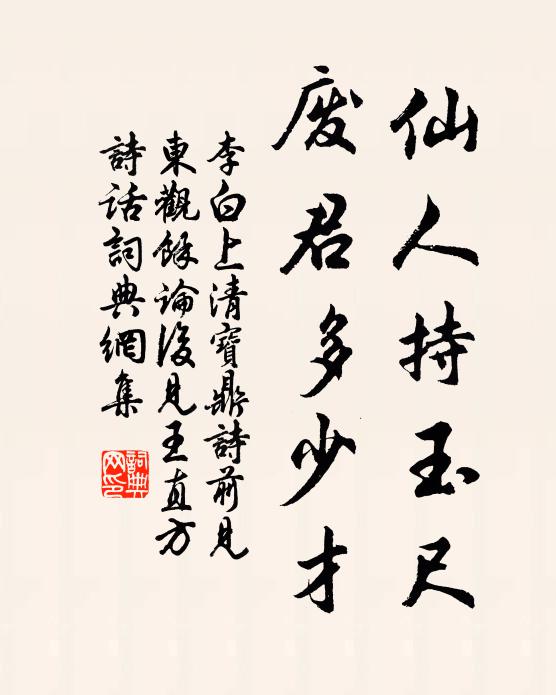 仙人持玉尺
废君多少才
李白上清寶鼎詩前見
東觀餘論後見王直方
詩話詞典網集
詞典
网印